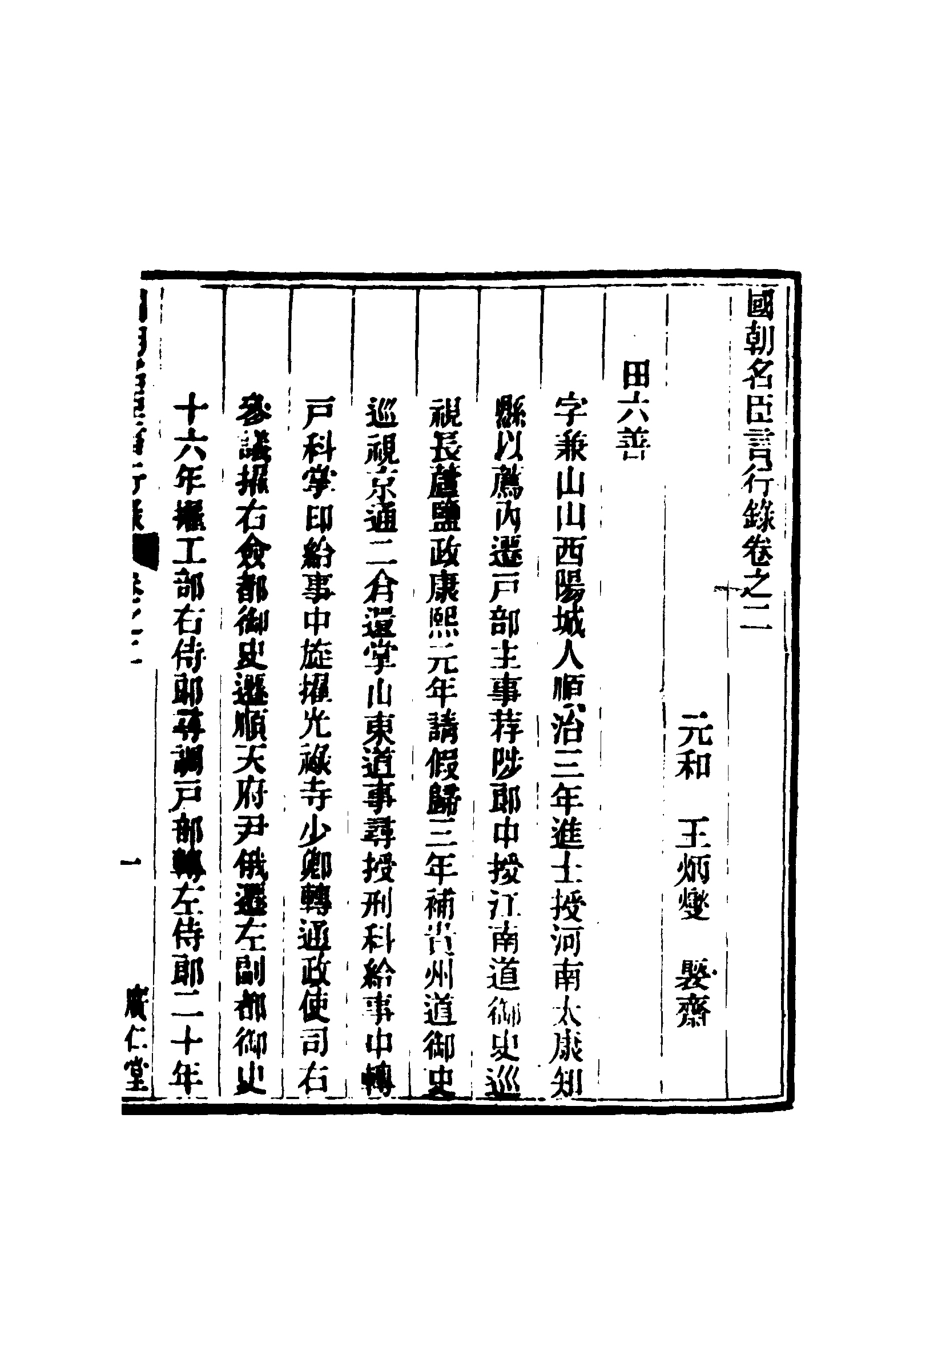 國朝名臣言行錄卷之二
元和　王炳燮　㷉齋
田六善
字兼山山西陽城人順治三年進士授河南太康知
縣以薦內遷戶部主事荐陟郎中授江南道御史巡
視長蘆鹽政康熙元年請假歸三年補貴州道御史
巡視京通二倉還掌山東道事尋授刑科給事中轉
戶科掌印給事中旋擢光祿寺少卿轉通政使司右
參議擢右僉都御史遷順天府尹俄遷左副都御史
十六年擢工部右侍郎尋調戶部轉左侍郎二十年
國朝名臣言行錄　卷之二　一　廣仁堂